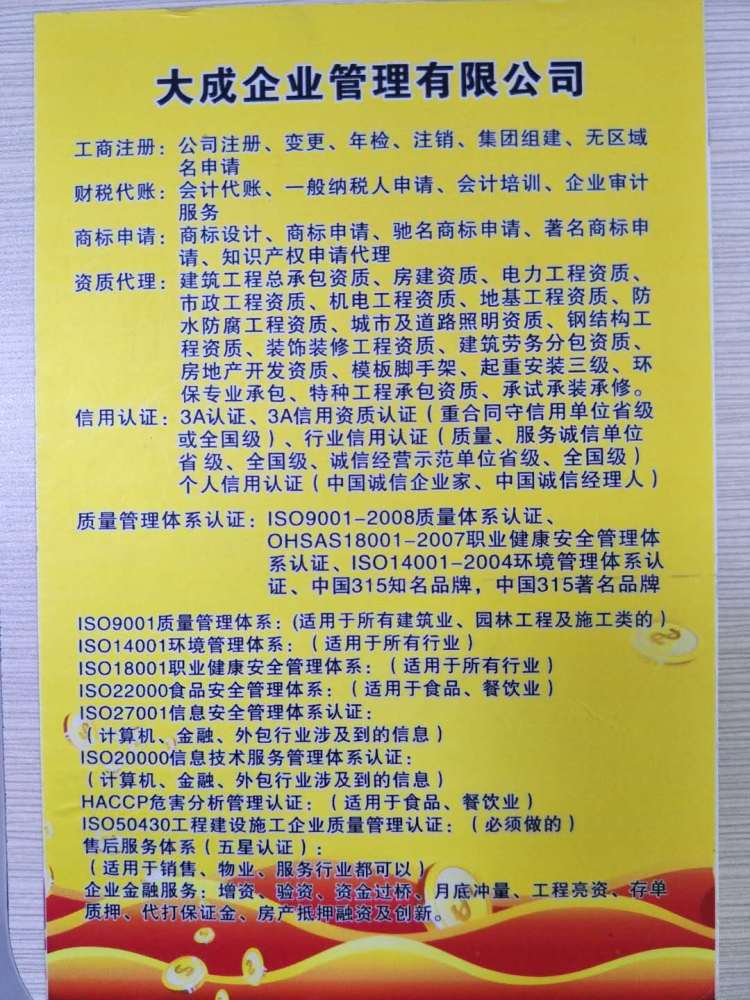 大成企业管理有限公司
工商注册：公司注册、变更、年检、注销、集团组建、无区域
名申请
财税代账：会计代账、一般纳税人申请、会计培训、企业审计
服务
商标申请：商标设计、商标申请、驰名商标申请、著名商标申
请、知识产权申请代理
资质代理：建筑工程总承包资质、房建资质、电力工程资质、
市政工程资质、机电工程资质、地基工程资质、防
水防腐工程资质、城市及道路照明资质、钢结构工
程资质、装饰装修工程资质、建筑劳务分包资质、
房地产开发资质、模板脚手架、起重安装三级、环
保专业承包、特种工程承包资质、承试承装承修。
信用认证：3A认证、3A信用资质认证（重合同守信用单位省级
或全国级）、行业信用认证（质量、服务诚信单位
省级、全国级、诚信经营示范单位省级、全国级）
个人信用认证（中国诚信企业家、中国诚信经理人）
质量管理体系认证：ISO9001-2008质量体系认证、
OHSAS18001-2007职业健康安全管理体
系认证、ISO14001-2004环境管理体系认
证、中国315知名品牌，中国315著名品牌
ISO9001质量管理体系：(适用于所有建筑业、园林工程及施工类的）
ISO14001环境管理体系：（适用于所有行业）
ISO18001职业健康安全管理体系：（适用于所有行业）
ISO22000食品安全管理体系：（适用于食品、餐饮业）
ISO27001信息安全管理体系认证：
（计算机、金融、外包行业涉及到的信息）
ISO20000信息技术服务管理体系认证：
（计算机、金融、外包行业涉及到的信息）
HACCP危害分析管理认证：（适用于食品、餐饮业）
ISO50430工程建设施工企业质量管理认证：（必须做的）
售后服务体系（五星认证）：
（适用于销售、物业、服务行业都可以）
企业金融服务：增资、验资、资金过桥、月底冲量、工程亮资、存单
质押、代打保证金、房产抵押融资及创新。